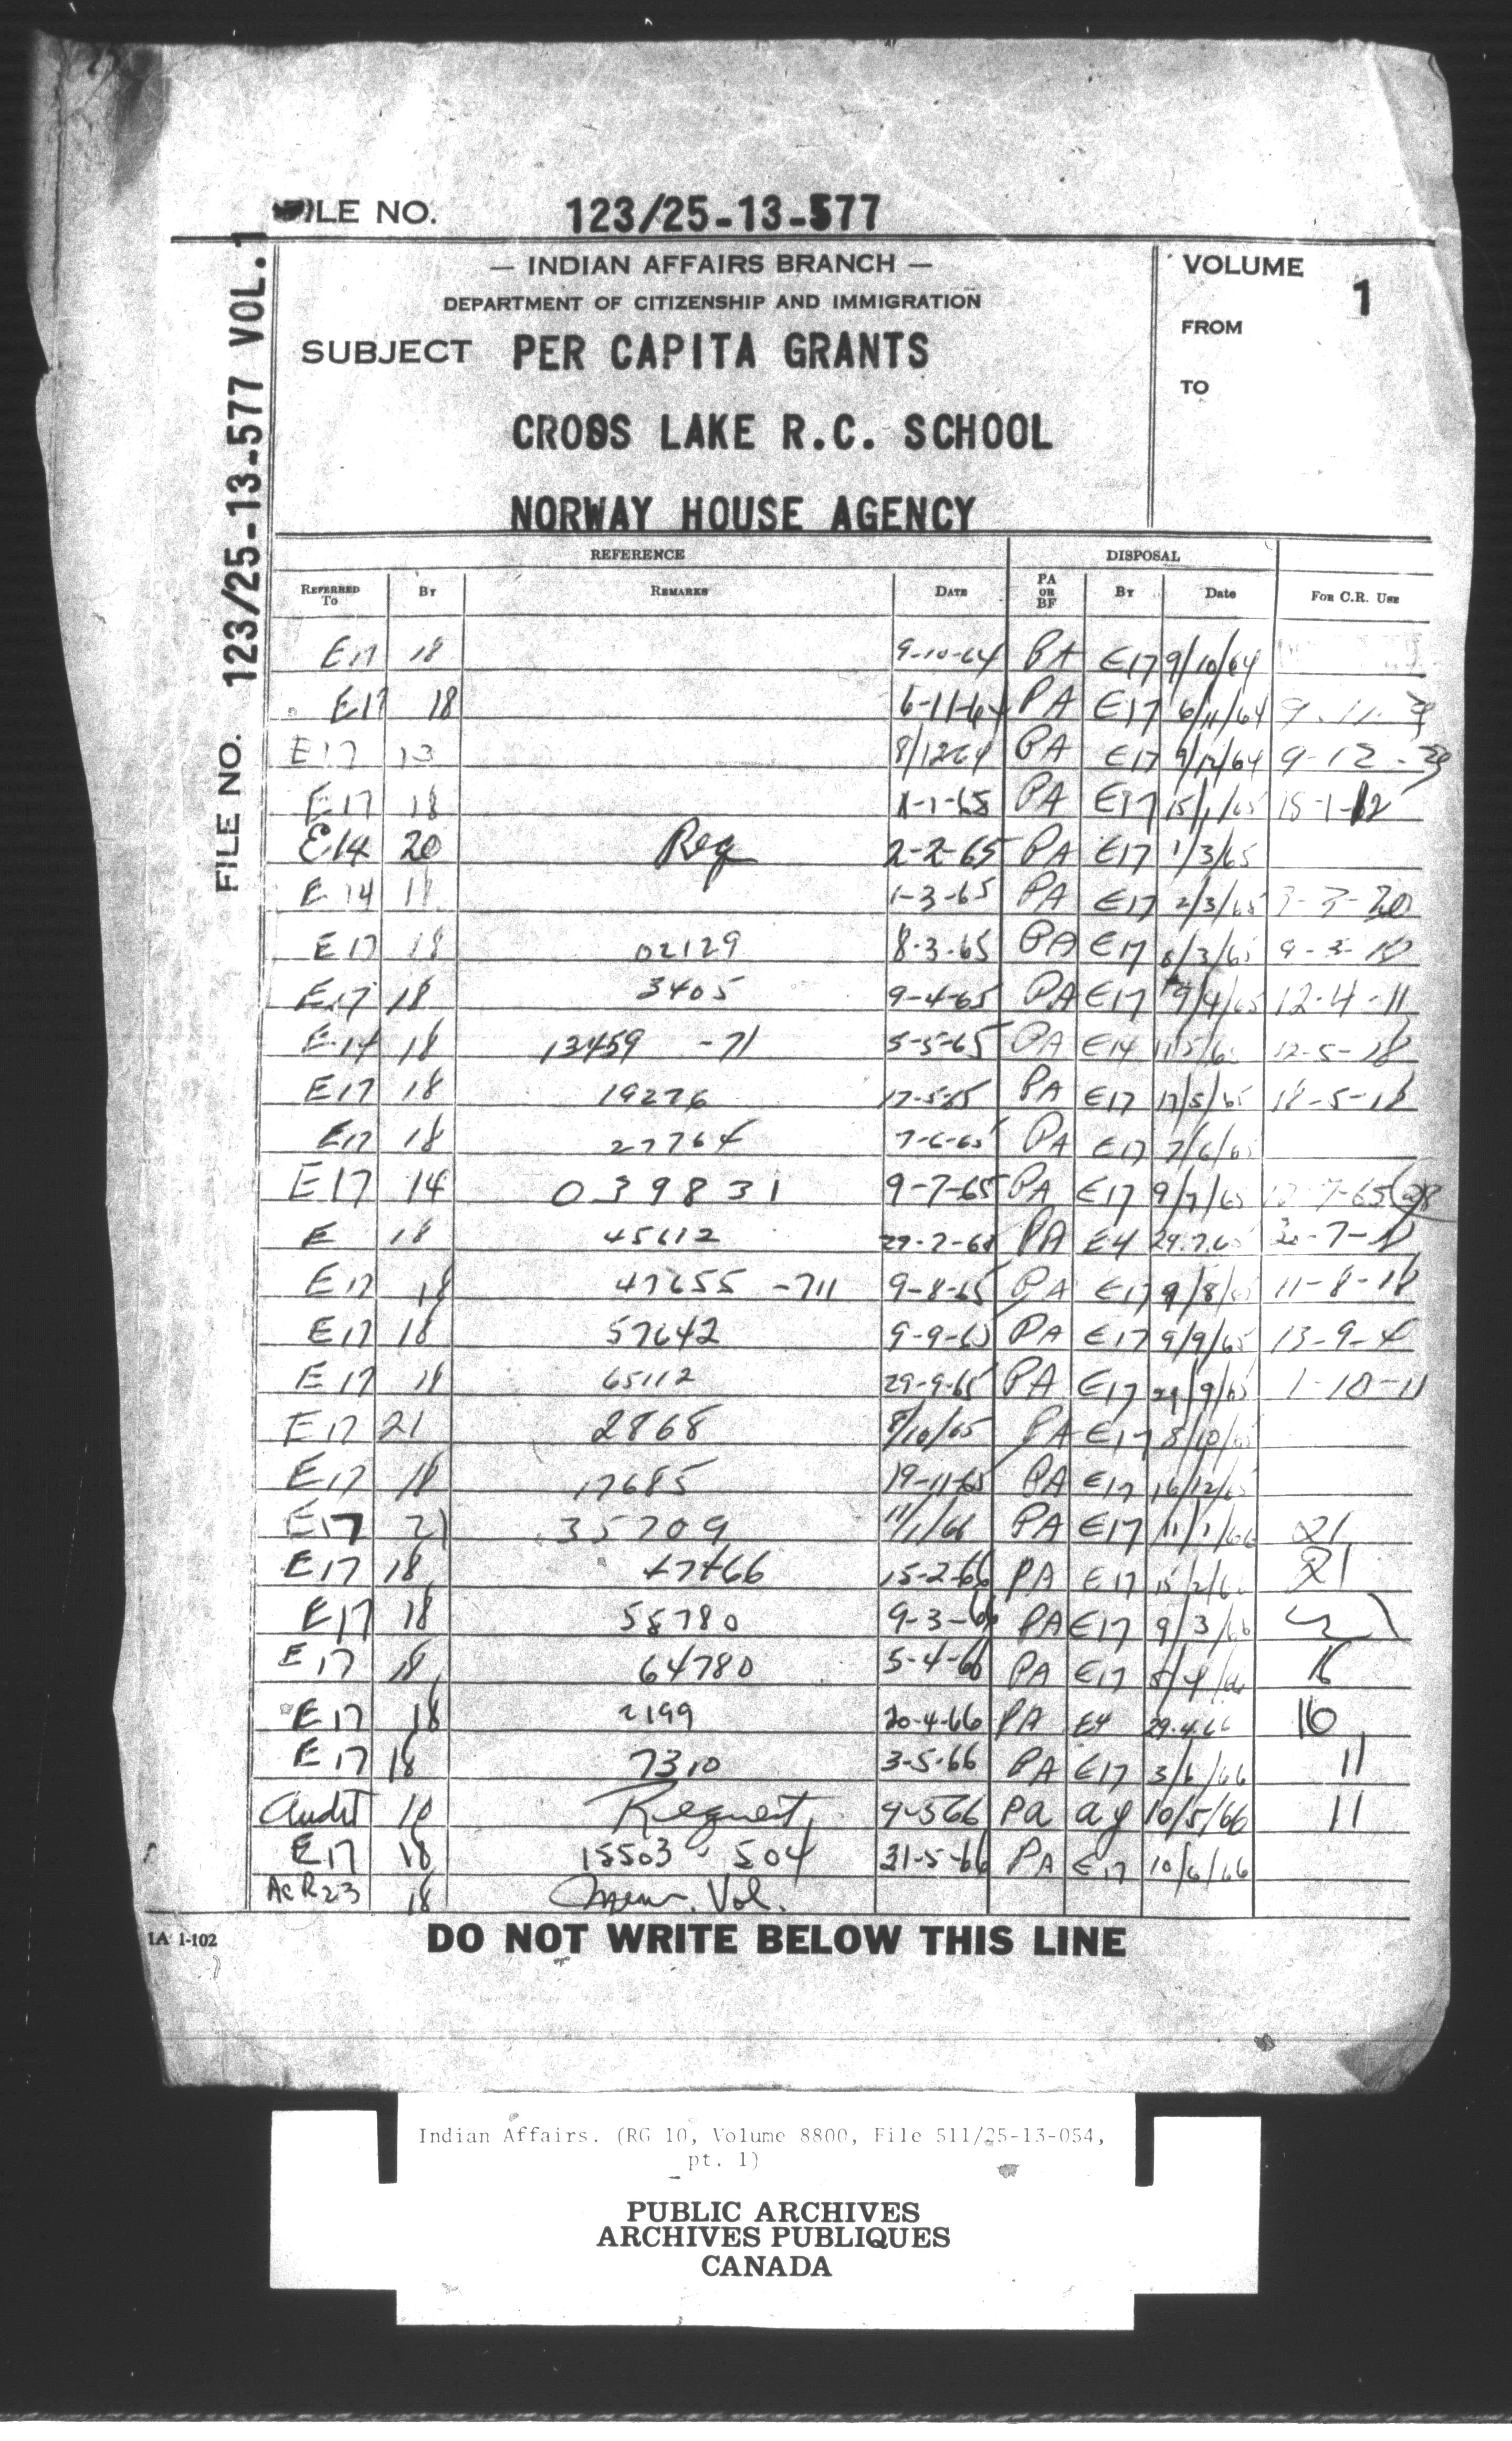 FILE NO. 123/25-13-577
FILE NO. 123/25-13-577 VOL. 1
— INDIAN AFFAIRS BRANCH —
DEPARTMENT OF CITIZENSHIP AND IMMIGRATION
SUBJECT PER CAPITA GRANTS
CROSS LAKE R.C. SCHOOL
NORWAY HOUSE AGENCY
VOLUME 1
FROM
TO
REFERENCE DISPOSAL
REFERRED TO BY REMARKS DATE PA OR BF BY Date FOR C.R. USE
E17 18 9-10-64 PA E17 9/10/64
E17 18 6-11-64 PA E17 6/11/64 9-11-
E17 13 8/12-64 PA E17 9/12/64 9-12-
E17 18 PA E17 15/1/65 15-1-12
E14 20 Req 2-2-65 PA E17 1/3/65
E14 11 1-3-65 PA E17 2/3/65
E17 18 02129 8-3-65 PA E17 8/3/65
E17 18 3405 9-4-65 PA E17 9/4/65 12-4-11
E14 18 13459 -71 5-5-65 PA E14 12-5-18
E17 18 19276 17-5-65 PA E17 17/5/65 18-5-18
E17 18 27764 7-6-65 PA E17 7/6/65
E17 14 039831 9-7-65 PA E17 9/7/65
E 18 45112 PA E4 29.7.65
E17 18 47655 -711 9-8-65 PA E17 9/8/65 11-8-18
E17 18 57642 9-9-65 PA E17 9/9/65 13-9-4
E17 18 65112 29-9-65 PA E17 29/9/65 1-10-11
E17 21 2868 8/10/65 PA E17 8/10/65
E17 18 17685 19-11-65 PA E17 16/12/65
E17 21 35709 11/1/66 PA E17 11/1/66 21
E17 18 47466 15-2-66 PA E17 15/2/66 21
E17 18 55780 9-3-66 PA E17 9/3/66
E17 18 64780 5-4-66 PA E17 5/4/66 16
E17 18 2199 20-4-66 PA E4 29.4.66 10
E17 18 7310 3-5-66 PA E17 3/6/66 11
Audit 10 Request 9-5-66 Pa ay 10/5/66 11
E17 18 15503 - 504 31-5-66 PA E17 10/6/66
AcR23 18 Vol.
IA 1-102
DO NOT WRITE BELOW THIS LINE
Indian Affairs. (RG 10, Volume 8800, File 511/25-13-054,
pt. 1)
PUBLIC ARCHIVES
ARCHIVES PUBLIQUES
CANADA